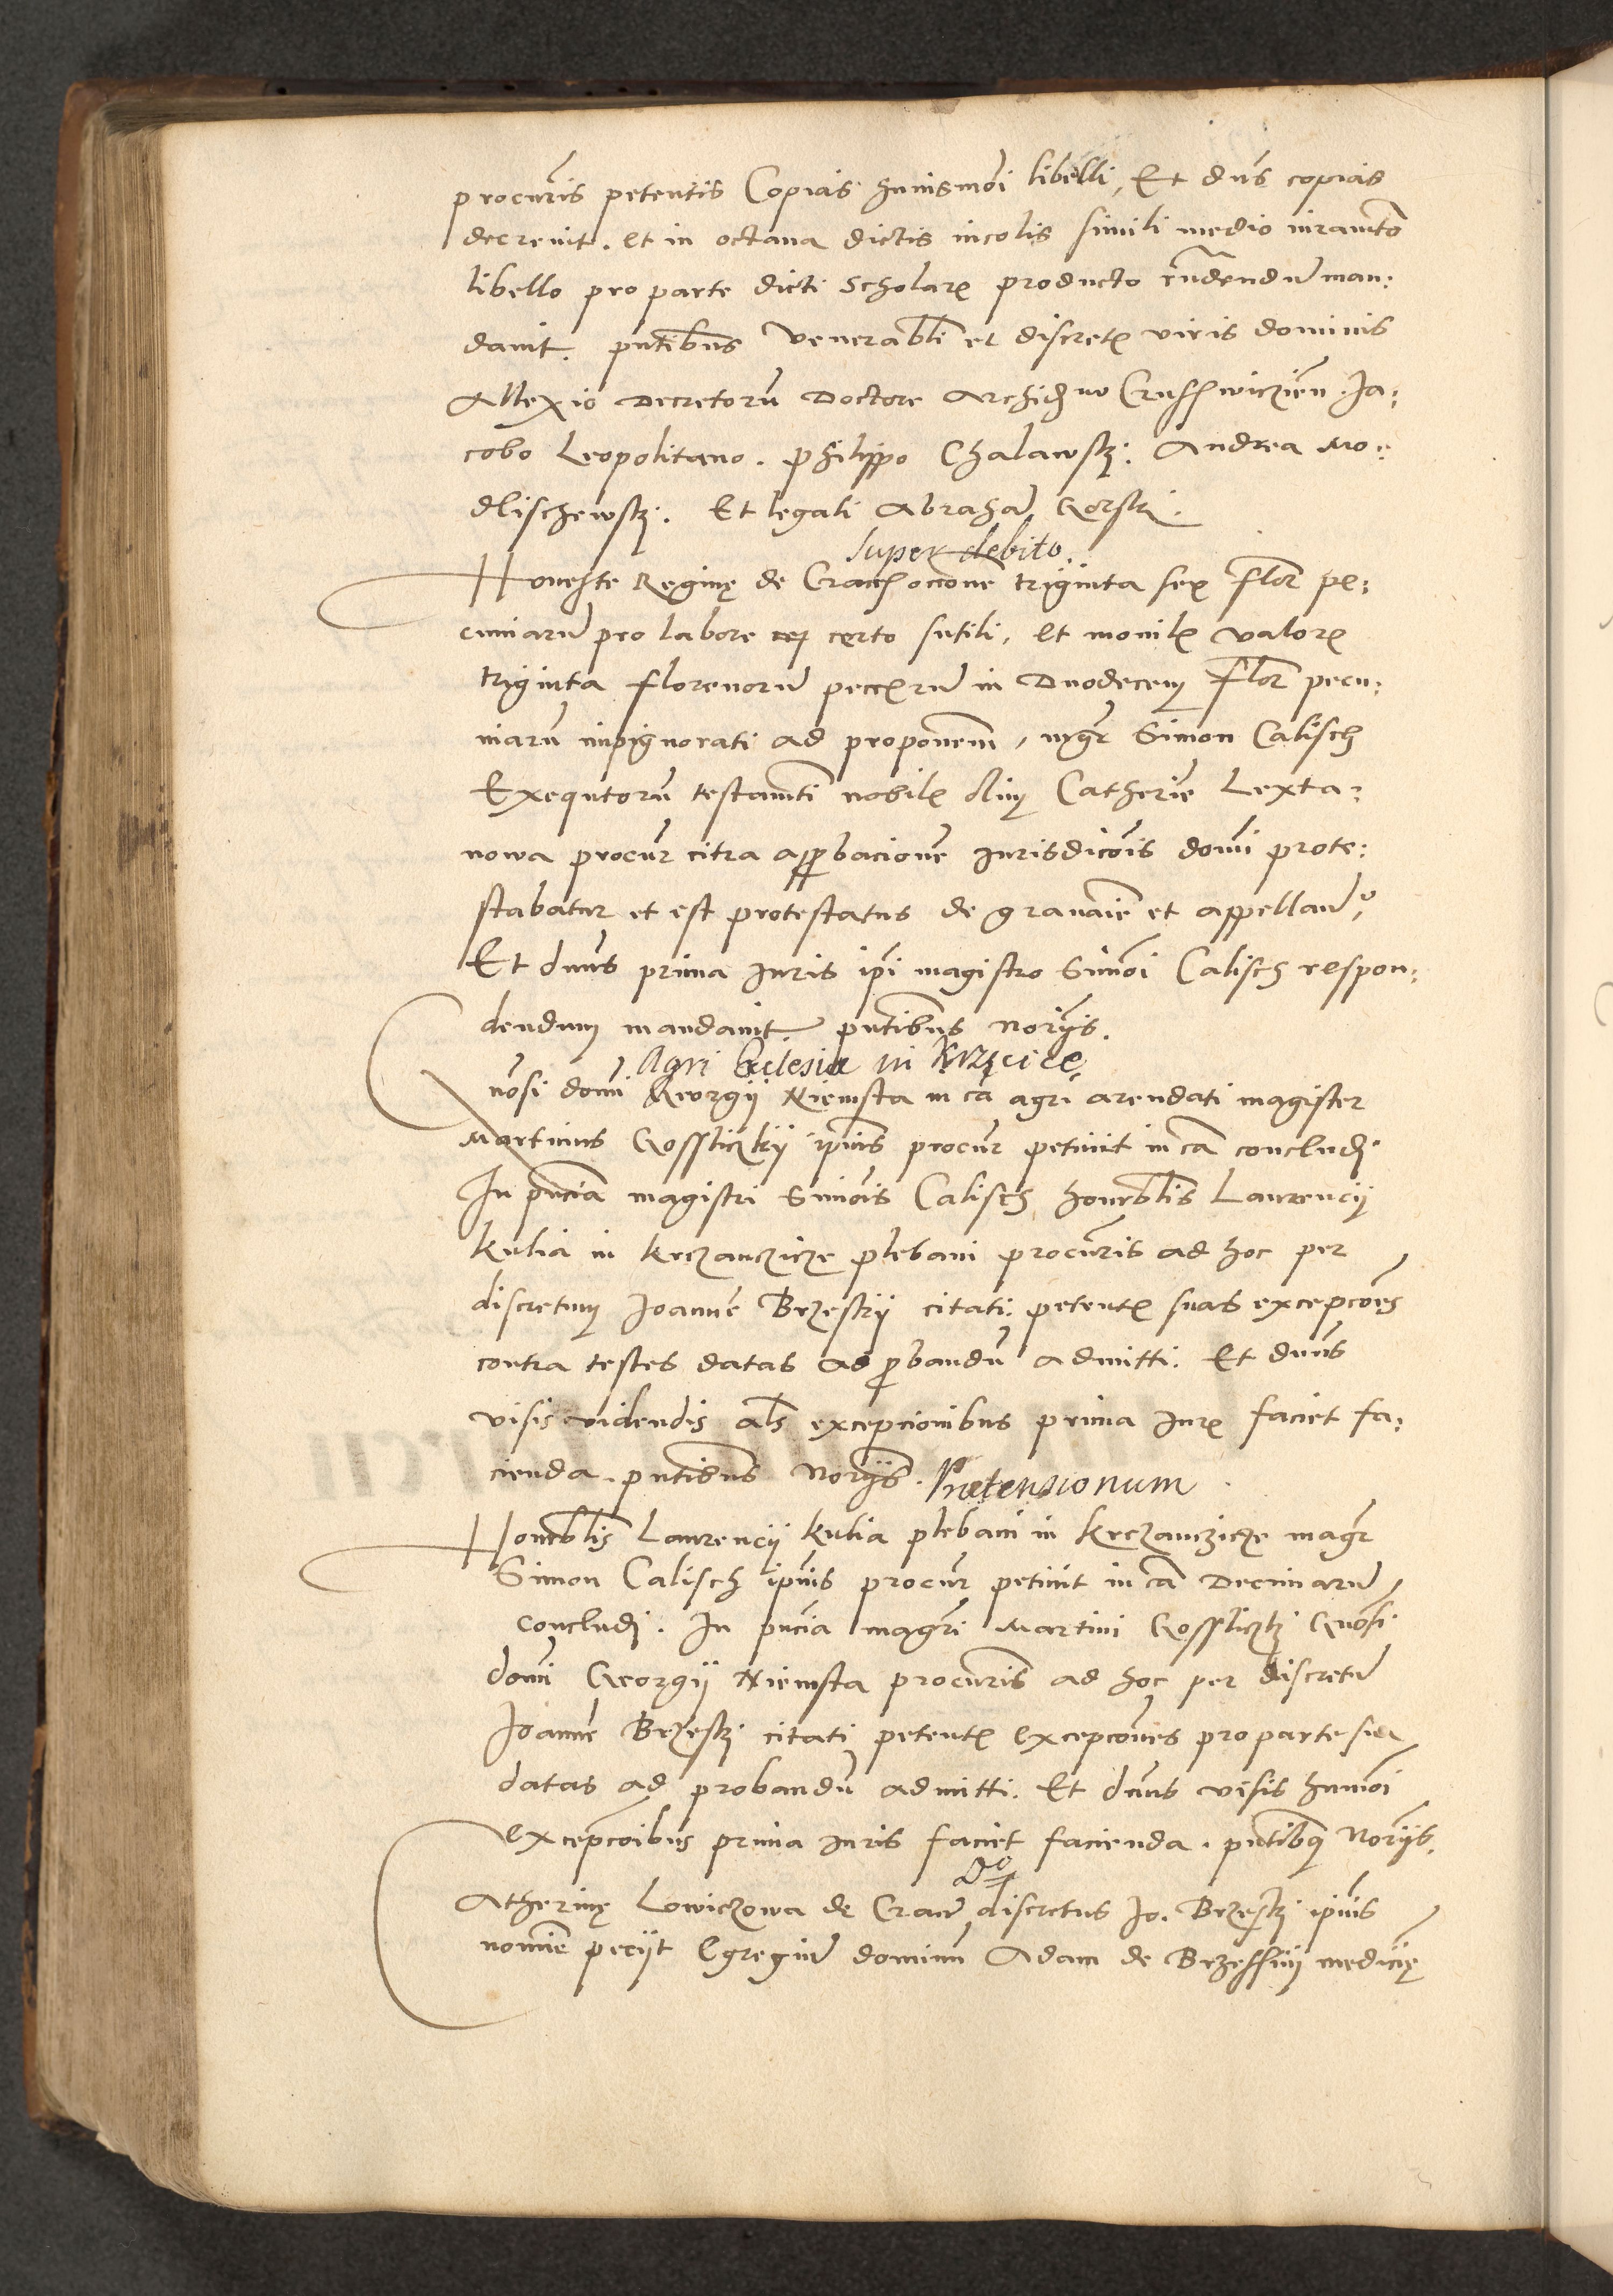 procur̄is petentis Copias huiusmo͞i libelli, Et dn͞s copias
decrevit. et in octava dictis incolis simili medio iuramto͞
libello pro parte dicti Scholarꝭ producto rn͞dendu͞ man:
davit. pn͞tibus Venerabli͞ et discretꝭ viris dominis
Allexio Decretoru͞ Doctore Archid͞no Crusswiczien͞. Ja:
cobo Leopolitano. Philippo Chalawskj. Andrea Mo:
dlischewskj. Et legali Abraha͞ Gorskj.
Super debito.
Honeste Reginę de Crac͞ occione͞ triginta sex flor͞ pe:
cuniaru͞ pro labore certo sutili, et monilꝭ valorꝭ
triginta florenoru͞ in Duodecem flor͞ pecu:
niaru͞ inpignorati ad proponem͞, mgr͞ Simon Calisch
Exequtoru͞ testamti͞ nobilꝭ olim Catheri͞e Lexta:
nowa procur͞ citra approbacione͞ Jurisdico͞is domi͞ prote:
stabatur et est protestatus de gravami͞e et appellan͞do,
Et dnu͞s prima Juris ip͞i magistro Simo͞i Calisch respon:
dendum mandavit pn͞tibus nor͞ijs.
Agri Ecclesiæ in Krzęcice
Gn͞osi domi͞ Georgij Niemsta in ca͞ agri arendati magister
Martinus Gossliczkij ipiu͞s procur͞ petivit in ca͞ concludj.
In pn͞cia magistri Simo͞is Calisch honorabl͞is Laurencij
Kulia in Krczanczicze plebani procur͞is ad hoc per
discretum Joanne͞ Brzeskij citati. petentꝭ suas excepco͞es
contra testes datas ad probandu͞ admitti. Et dnu͞s
visis videndis als͞ excepcionibus prima Jurꝭ faciet fa:
cienda. pn͞tibus Nor͞ijs. Prætensionum
Honorabl͞is Laurencij Kulia plebani in Krczanczicze magr͞
Simon Calisch ipiu͞s procur͞ petivit in ca͞ Decimaru͞
concludj. In pn͞cia magr͞i Martini Gossliczkj Gn͞osi
domi͞ Georgij Niemsta procur͞is ad hoc per discretu͞
Joanne͞ Brzeskj citati petentꝭ excepco͞nes pro parte sua
datas ad probandu͞ admitti. Et dnu͞s visis huiumo͞i
excepco͞ibus prima Juris faciet facienda. pn͞tibus Nor͞ijs.
Catherinę Lowiczowa de Crac͞ discretus Jo. Brzeskj ipiu͞s
nomi͞e pecijt Egregiu͞ dominu͞ Adam de Brzessiny medici͞ę